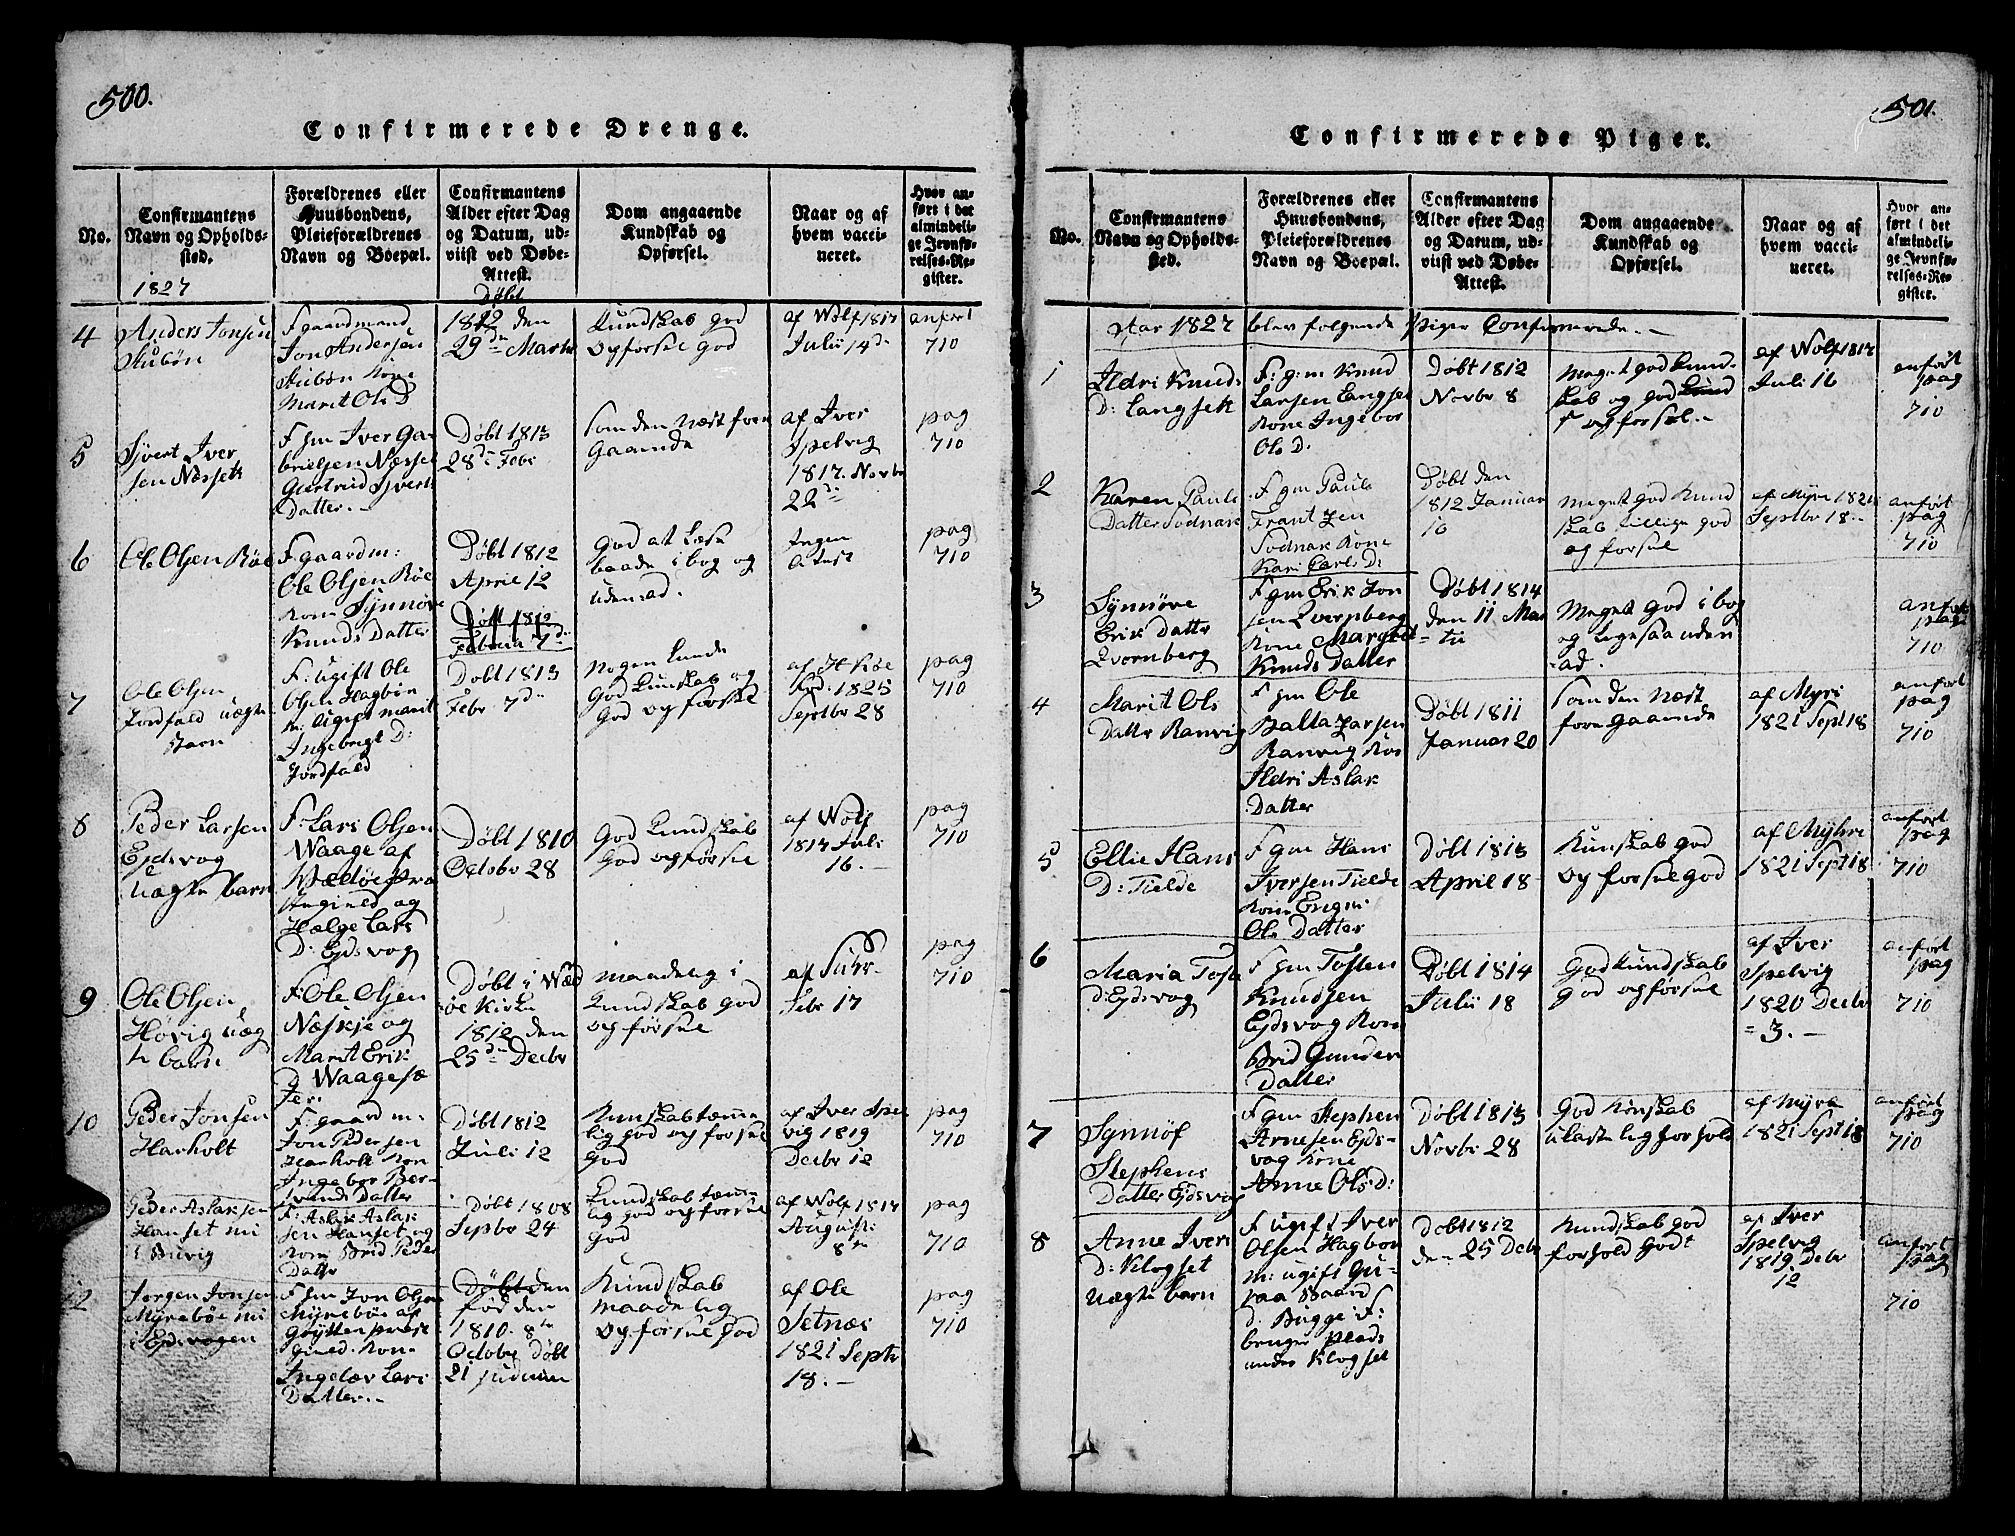 500.
Confirmerede Drenge.
No.
Confirmantens
Navn og Opholds-
sted.
1827
Forældrenes eller
Huusbondens,
Pleieforældrenes
Navn og Boepæl.
Confirmantens
Alder efter Dag
og Datum, ud-
viist ved Døbe-
Attest.
Døbt
Dom angaaende
Kundskab og
Opførsel.
Naar og af
hvem vacci-
neret.
Hvor an-
ført i det
almindeli-
ge Jevnfø-
relses-Re-
gister.
4
Anders Jonsen
Stubøn
F gaardmand
Jon Andersen
Stubøn Kone
Marit Ols D
1812 den
29de Marts
Kundskab god
opførsel god
af Wolf 1817
Julii 14d
anført
710
5
Sjvert Iver
sen Næsset
F gm Iver Ga-
brielsen Næsset
Gurtrud Sjverts
Datter.-
Døbt 1813
28de Febr
Som den Næst fore
Gaaende
af Iver
Spelvig
1817. Novbr
22de
pag
710
6
Ole Olsen Röe
F. gaardm:
Ole Olsen Röe
Kone Synnøve
Knuds Datter
Døbt 1812
April 12
Døbt 1813
Februar 7d
God at Læse
baade i bog og
uden ad.
Ingen
Attest
pag
710
7
Ole Olsen
Jordfald uægte
Barn
F: ugift Ole
Olsen Hagbøn
M: Ugift Marit
Ingebrigt D:
Jordfald
Døbt 1813
Febr 7d
Nogen Lunde
God Kunskab og
God opførsel
af H. Röe
1825
Septbr 28
pag
710
8
Peder Larsen
Ejdsvog
Uægte barn
F: Lars Olsen
Waage af
Wædöe Præ
stegield og
Hælge Lars
D: Ejdsvog
Døbt 1810
October 28
God Kundskab
God opførsel
af Wolf
1817 Juli
16.-
pag
710
9
Ole Olsen
Høvig uæg
te barn
F: Ole Olsen
Næskje og
Marit Erik
D Waagesæ
ter.
Døbt i Wæd
öe Kirke
1812 den
25de Decbr
maadelig i
Kundskab god
opførsel
af Suhr
Febr 17
pag
710
10
Peder Jonsen
Harholt
F. gaardm:
Jon Pedersen
Harholt Kon
Ingebor Ber-
svends Datter
Døbt 1812
Juli 12
Kunskab temme
lig god opførsel
God
af Iver Spel
vig 1819
Decbr 12
pag
710
Peder Aslaksen
Hanset nu
i Buvig
F: Aslak Aslak
sen Hanset og
Kone Brid Peder
Datter
Døbt 1808
Sepbr 24
Kundskab temme
lig god opførsel
God
af Wolf 1817
August
8de
pag
710
12
Jørgen Jonsen
Myrebøe nu
i Ejdsvogen
F gm Jon Olsen
Myrebøe af
Grytten præste
gield. Kon-
Ingelær Lars
Datter.-
Døbt den
fød den
1810. 8de
October døbt
21
Kundskab
maadelig
Opførsel God
af Ole
Setnæs
1821 Septr
18.-
pag
710
501.
Confirmerede Piger.
No.
Confirmantens
Navn og Opholds-
sted.
Forældrenes eller
Huusbondens,
Pleieforældrenes
Navn og Boepæl.
Confirmantens
Alder efter Dag
og Datum, ud-
viist ved Døbe-
Attest.
Dom angaaende
Kundskab og
Opførsel.
Naar og af
hvem vacci-
neret.
Hvor an-
ført i det
almindeli-
ge Jevnfø-
relses-Re-
gister.
Aar 1827 blev følgende Piger Confirmerede.-
1
Ildri Knuds
D: Langset
F: g:m Knud
Larsen Langset
Kone Ingebor
Ols D.
Døbt 1812
Novbr 8
Meget god Kund
skab og god Kund
opførsel.-
af Wolf 1817
Juli 16
anført
pag
710
2
Karen Pauls
Datter Sodnak
F gm Paul
Frantzen
Sodnak Kone
Kari Carls D:
Døbt den
1812 Januar
16
Meget god Kund
skab tillige god
opførsel
af Myre 1821
Septbr 18.-
anført
pag
710
3
Synnøve
Erik Datter
Qvernberg
F gm Erik Jon
sen Qvernberg
Kone Margret
Knuds Datter
Døbt 1814
den 11 Mar
ts
Meget God i bog
og Ligesaa uden
ad.
anført
pag
710
4
Marit Ols
Datter Ranvig
F gm Ole
Baltazarsen
Ranvig Kone
Ildri Aslak
Datter
Døbt 1811
Januar 20
Som den Næst
foregaaende
af Myre
1821 Sept 18
anført
pag
710
5
Ellie Hans
D: Tielde
F gm Hans
Iversen Tielde
Kone
Ols Datter
Døbt 1813
April 18
Kunskab god
opførsel god
af Myhre
1821 Sept 18
anført
pag
710
6
Maria Tosta
d: Ejdsvog
F gm Tosten
Knudsen
Ejdsvog Kon
Brid Gunder
Datter
Døbt 1814
Julii 18
God Kundskab
God opførsel
af Iver
Spelvig
1820 Decbr
= 3.-
anført
pag
710
7
Synnøf
Stephens
Datter Ejdsvog
F gm Stephen
Arnesen Ejds-
vog Kone
Anne Ols D:
Døbt 1813
Novbr 28
God Kønskab
ulastelig forhold
af Myre
1821 Sept 18
anført
pag
710
8
Anne Ivers
D: Klogset
Uægte barn
F ugift Iver
Olsen Hagbøn
M: ugift Gu-
Baard
D. Bugge i F:
bruger plads
under Klogset
Døbt 1812
den 25 Decbr
Kundskab god
forhold Godt
af Iver
Spelvig
1819 Debr
12
anført
pag
710